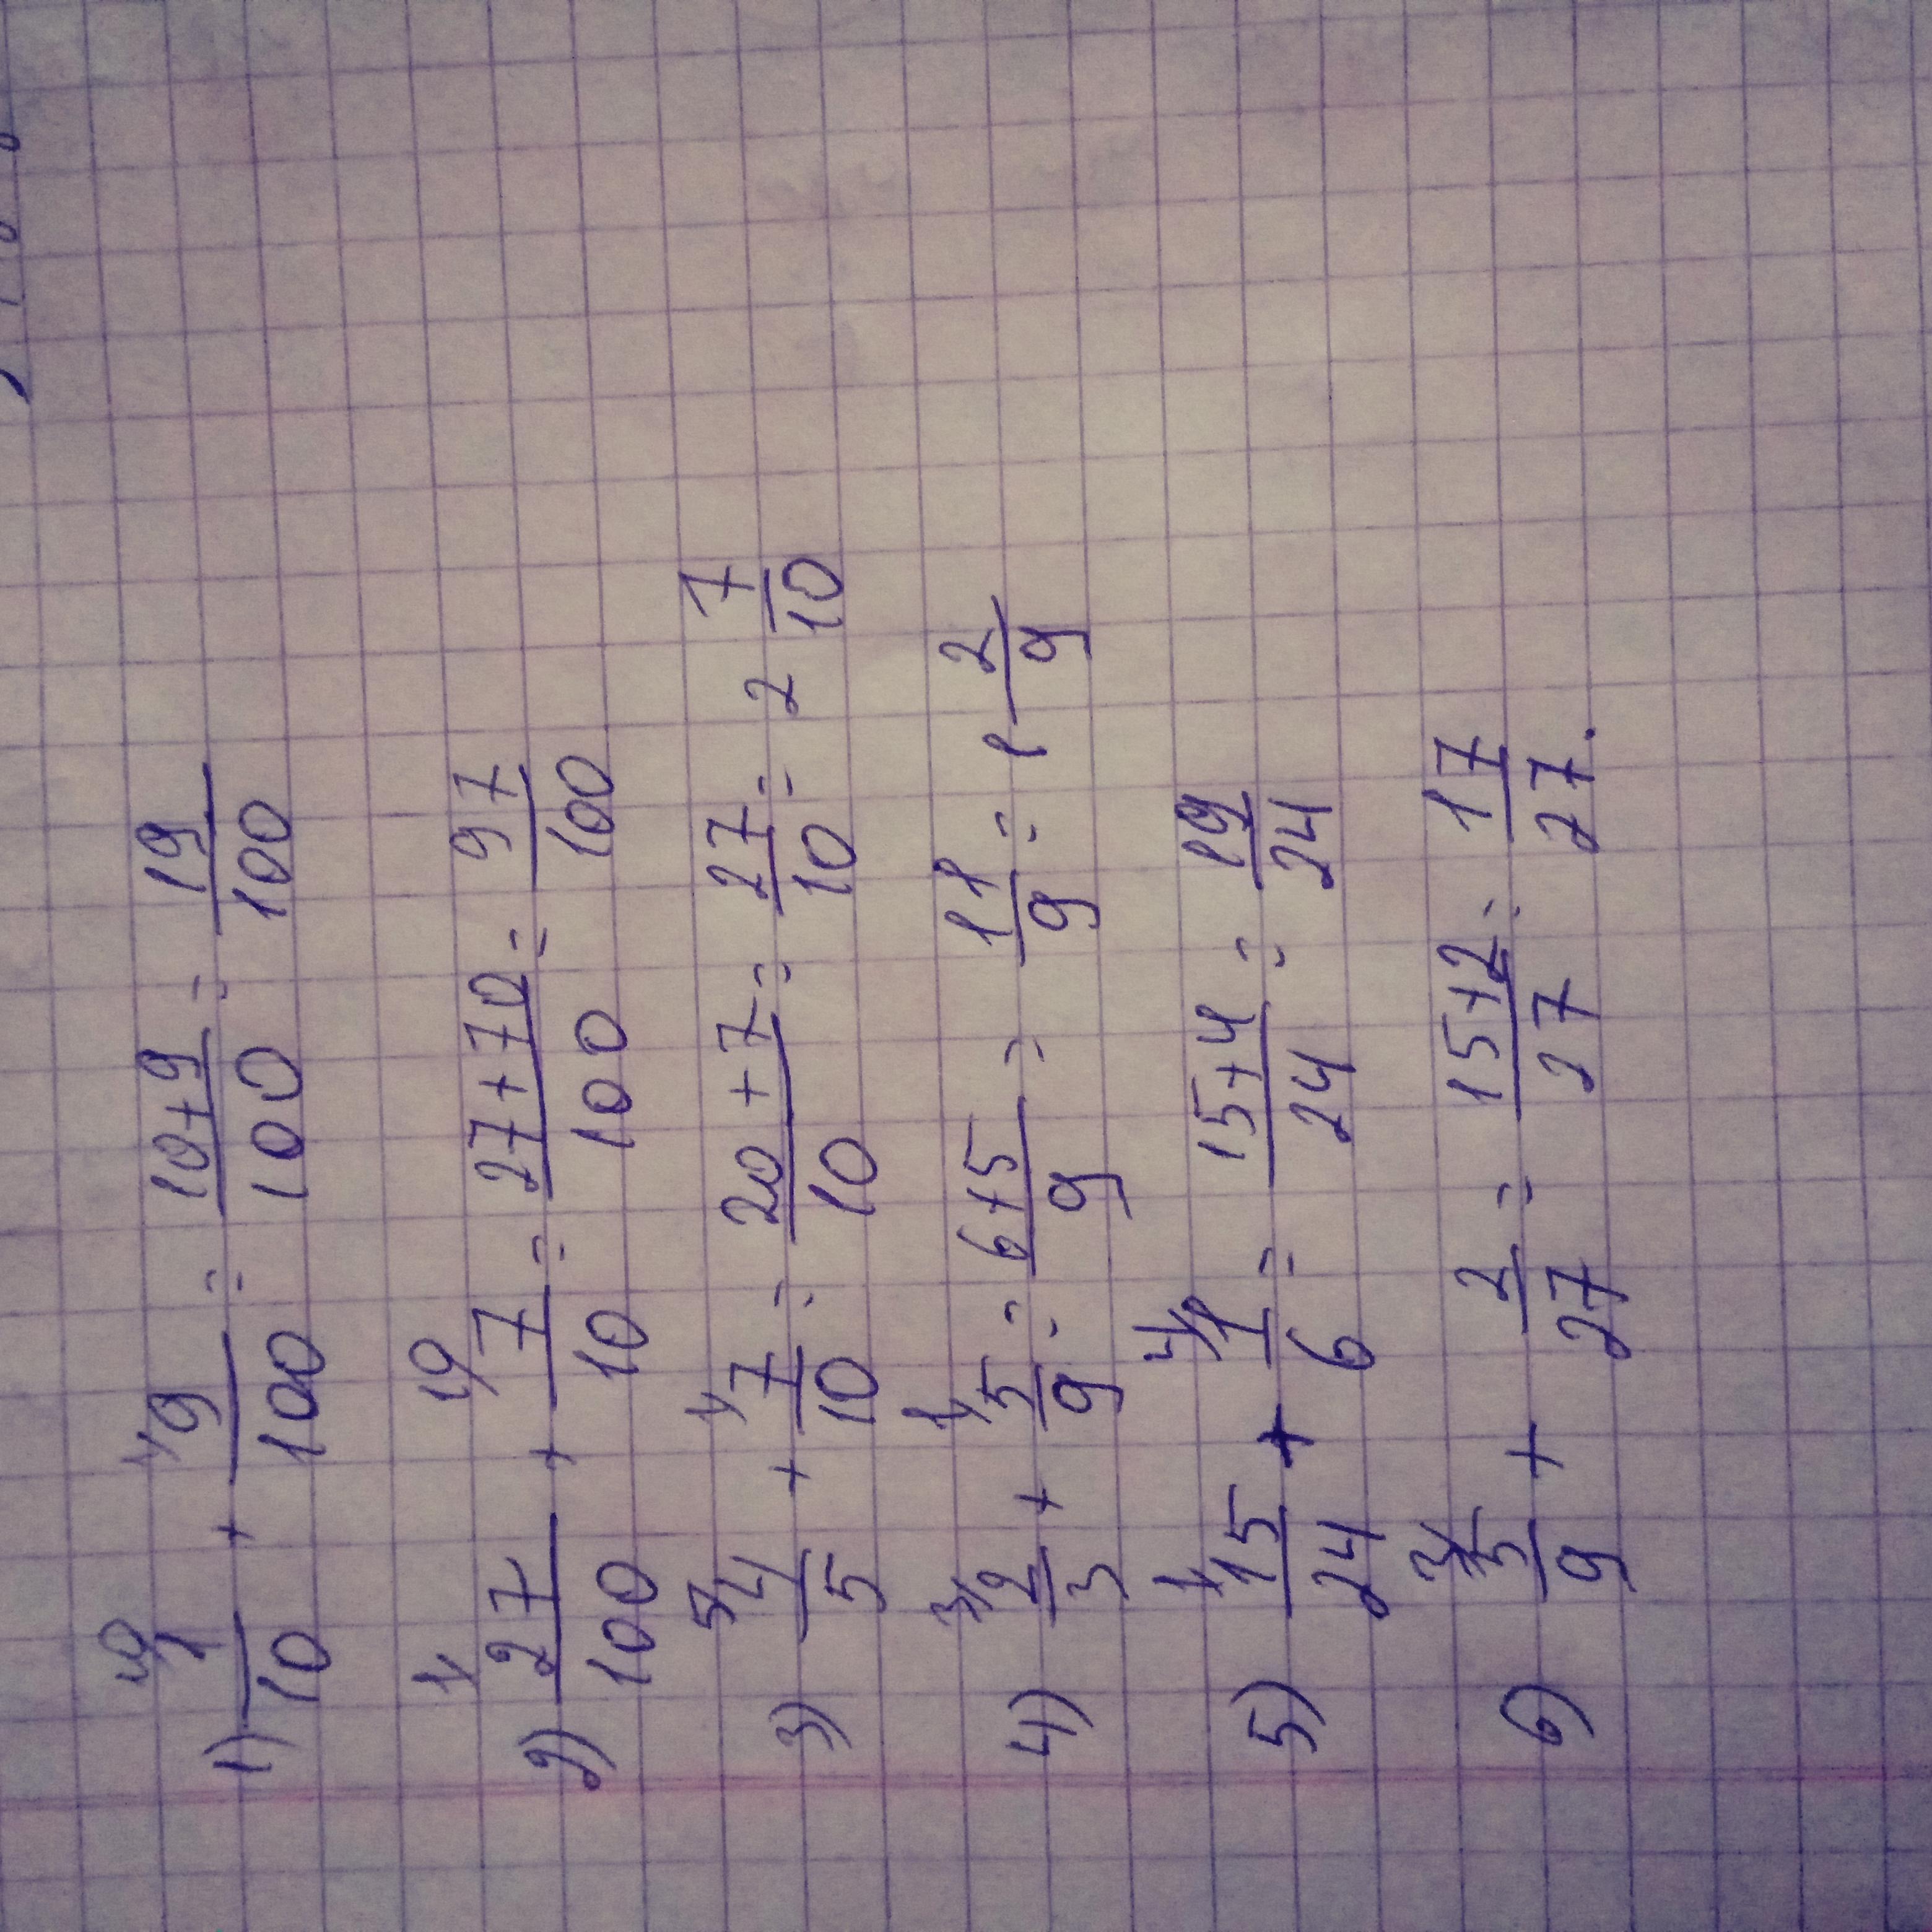 1) 10/ 1/10 + 1/ 9/100 = (10+9)/100 = 19/100
2) 1/ 27/100 + 10/ 7/10 = (27+70)/100 = 97/100
3) 5/ 4/5 + 1/ 7/10 = (20+7)/10 = 27/10 = 2 7/10
4) 3/ 2/3 + 1/ 5/9 = (6+5)/9 = 11/9 = 1 2/9
5) 1/ 15/24 + 4/ 1/6 = (15+4)/24 = 19/24
6) 3/ 5/9 + 2/27 = (15+2)/27 = 17/27.